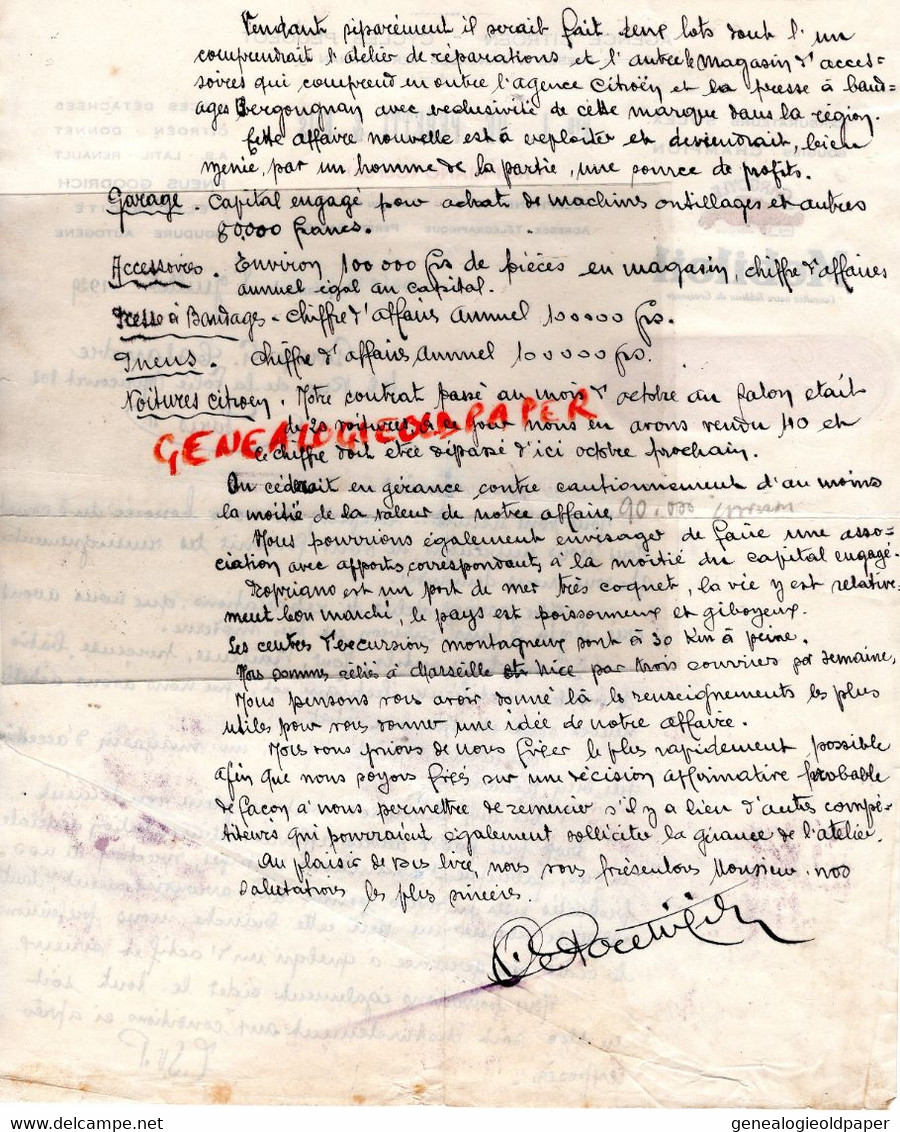 Vendant séparément il serait fait deux lots dont l'un
comprendrait l'atelier de réparations et l'autre le magasin d'acces-
soires qui comprend en outre l'agence Citroën et la presse à band-
ages Bergougnan avec exclusivité de cette marque dans la région.
Cette affaire nouvelle est à exploiter et deviendrait, bien
gérée, par un homme de la partie, une source de profits.
Garage. Capital engagé pour achat de machines outillages et autres
80.000 francs.
Accessoires. Environ 100 000 frs de pièces en magasin, chiffre d'affaires
annuel égal au capital.
Presse à Bandages - chiffre d'affaires annuel 100000 frs.
Pneus. chiffre d'affaires annuel 100000 frs.
Voitures Citroen. Notre contrat passé au mois d'octobre au Salon était
de 20 voitures, à ce jour nous en avons vendu 40 et
ce chiffre doit être dépassé d'ici octobre prochain.
GENEALOGIEOLDPAPER
On céderait en gérance contre cautionnement d'au moins
la moitié de la valeur de notre affaire 90.000 environ
Nous pourrions également envisager de faire une asso-
ciation avec apports correspondants à la moitié du capital engagé.
Propriano est un port de mer très coquet, la vie y est relative-
ment bon marché, le pays est poissonneux et giboyeux.
Les centres d'excursions montagneux sont à 30 Km à peine.
Nous sommes réliés à Marseille et Nice par trois courriers par semaine,
Nous pensons vous avoir donné là les renseignements les plus
utiles pour vous donner une idée de notre affaire.
Nous vous prions de nous fixer le plus rapidement possible
afin que nous soyons fixés sur une décision affirmative probable
de façon à nous permettre de remercier s'il y a lieu d'autres compé-
titeurs qui pourraient également solliciter la gérance de l'atelier.
Au plaisir de vous lire, nous vous présentons Monsieur nos
salutations les plus sincères.
delcampe.net
genealogieoldpaper